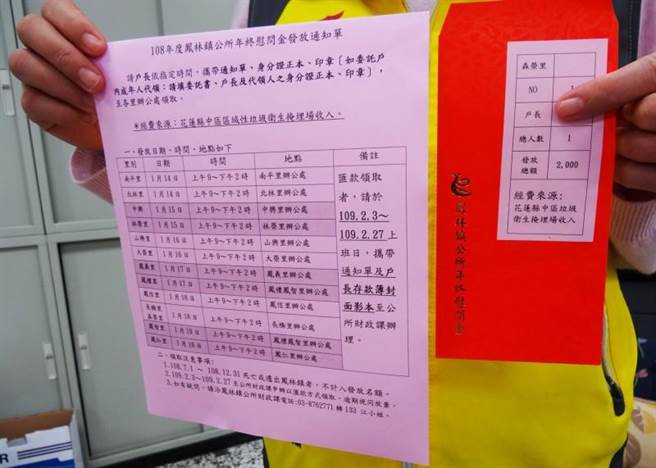 108年度鳳林鎮公所年終慰問金發放通知單
請戶長依指定時間，攜帶通知單、身分證正本、印章〔如委託戶
內成年人代領：請填委託書、戶長及代領人之身分證正本、印章〕，
至各里辦公處領取。
*經費來源：花蓮縣中區區域性垃圾衛生掩埋場收入。
一、發放日期、時間、地點如下
里別 日期 時間 地點 備註
南平里 1月14日 上午9~下午2時 南平里辦公處
北林里 1月14日 上午9~下午2時 北林里辦公處
中興里 1月15日 上午9~下午2時 中興里辦公處
森榮里 1月15日 上午9~下午2時 森榮里辦公處
山興里 1月16日 上午9~下午2時 山興里辦公處
大榮里 1月16日 上午9~下午2時 大榮里辦公處
鳳義里 1月17日 上午9~下午2時 鳳義里辦公處
鳳禮里 1月17日 上午9~下午2時 鳳禮鳳智里辦公處
鳳信里 1月18日 上午9~下午2時 鳳信里辦公處
長橋里 1月18日 上午9~下午2時 長橋里辦公處
鳳智里 1月19日 上午9~下午2時 鳳禮鳳智里辦公處
鳳仁里 1月19日 上午9~下午2時 鳳仁里辦公處
匯款領取
者，請於
109.2.3~
109.2.27上
班日，攜帶
通知單及戶
長存款簿封
面影本至公
所財政課辦
理。
二、領取注意事項：
1.108.7.1 ~ 108.12.31死亡或遷出鳳林鎮者，不計入發放名額。
2.109.2.3~109.2.27至公所財政課申辦以匯款方式領取，逾期視同放棄。
3.如有疑問，請洽鳳林鎮公所財政課電話:03-8762771轉133江小姐。
森榮里
NO 1
戶長
總人數 1
發放
總額 2,000
經費來源:
花蓮縣中區垃圾
衛生掩埋場收入
鳳林鎮公所年終慰問金